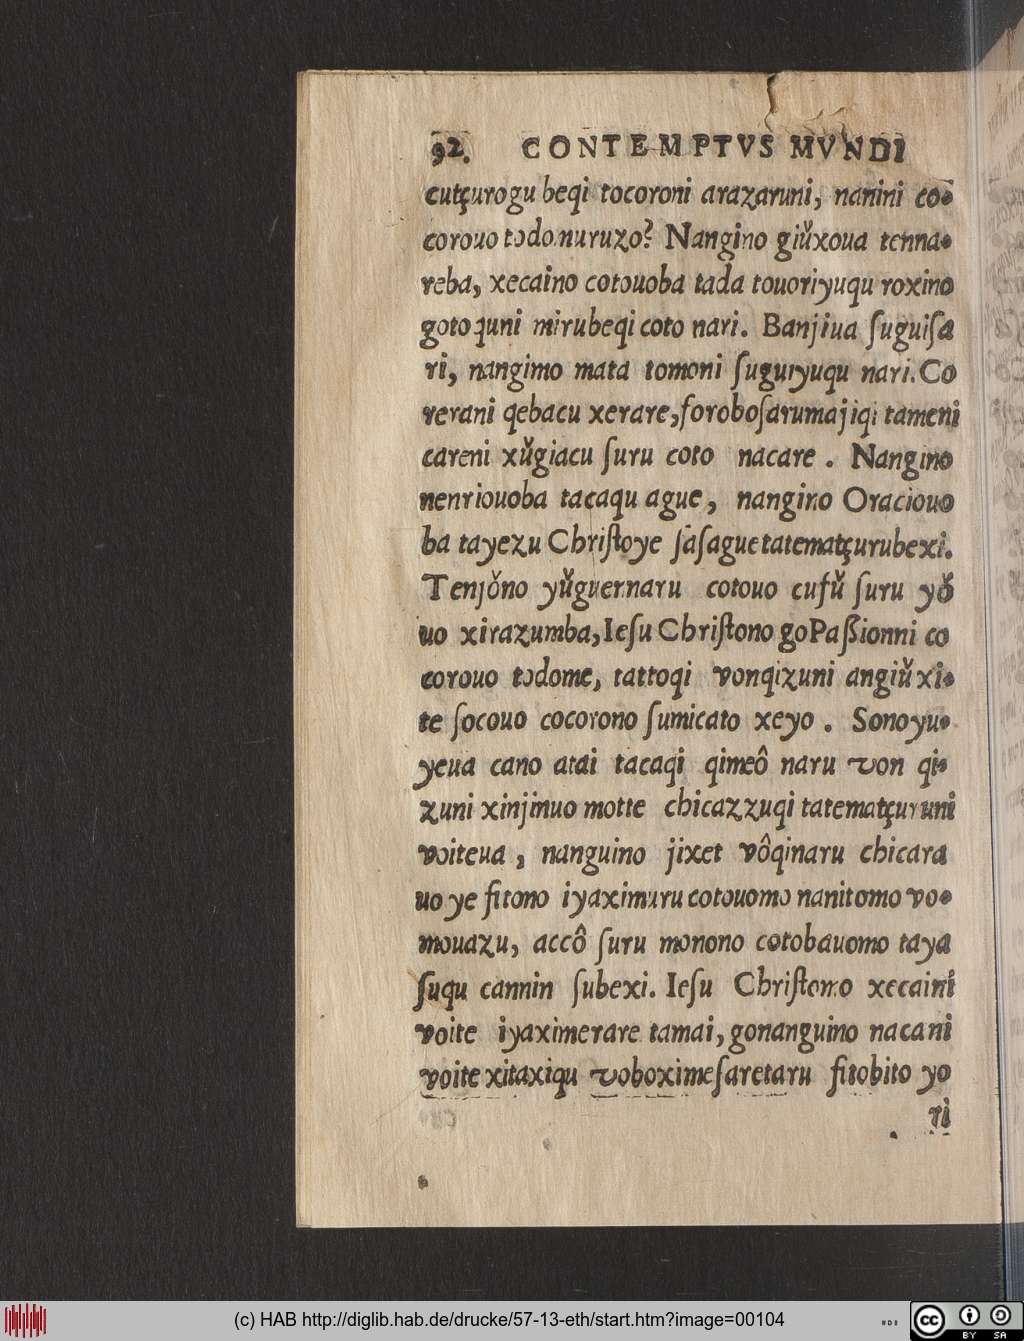 92. CONTEMPTVS MVNDI
cutçurogu beqi tocoroni arazaruni, nanini co-
corouo todomuruzo? Nangino giǔxoua tenna-
reba, xecaino cotouoba tada touoriyuqu roxino
gotoquni mirubeqi coto nari. Banjiua ſuguiſa
ri, nangimo mata tomoni ſuguiyuqu nari. Co
rerani qebacu xerare, foroboſarumajiqi tameni
careni xǔgiacu ſuru coto nacare. Nangino
nenriouoba tacaqu ague, nangino Oraciouo
ba tayezu Chriſtoye ſaſague tatematçurubexi.
Tenjǒno yǔguernaru cotouo cufǔ ſuru yǒ
uo xirazumba, Ieſu Chriſtono goPaſsionni co
corouo todome, tattoqi vonqizuni angiǔxi-
te ſocouo cocorono ſumicato xeyo. Sonoyu-
yeua cano atai tacaqi qimeô naru von qi-
zuni xinjinuo motte chicazzuqi tatematçuruni
voiteua, nanguino jixet vôqinaru chicara
uo ye fitono iyaximuru cotouomo nanitomo vo-
mouazu, accô ſuru monono cotobauomo taya
ſuqu cannin ſubexi. Ieſu Chriſtomo xecaini
voite iyaximerare tamai, gonanguino nacani
voite xitaxiqu voboximeſaretaru fitobito yo
ri
(c) HAB http://diglib.hab.de/drucke/57-13-eth/start.htm?image=00104
cc BY SA